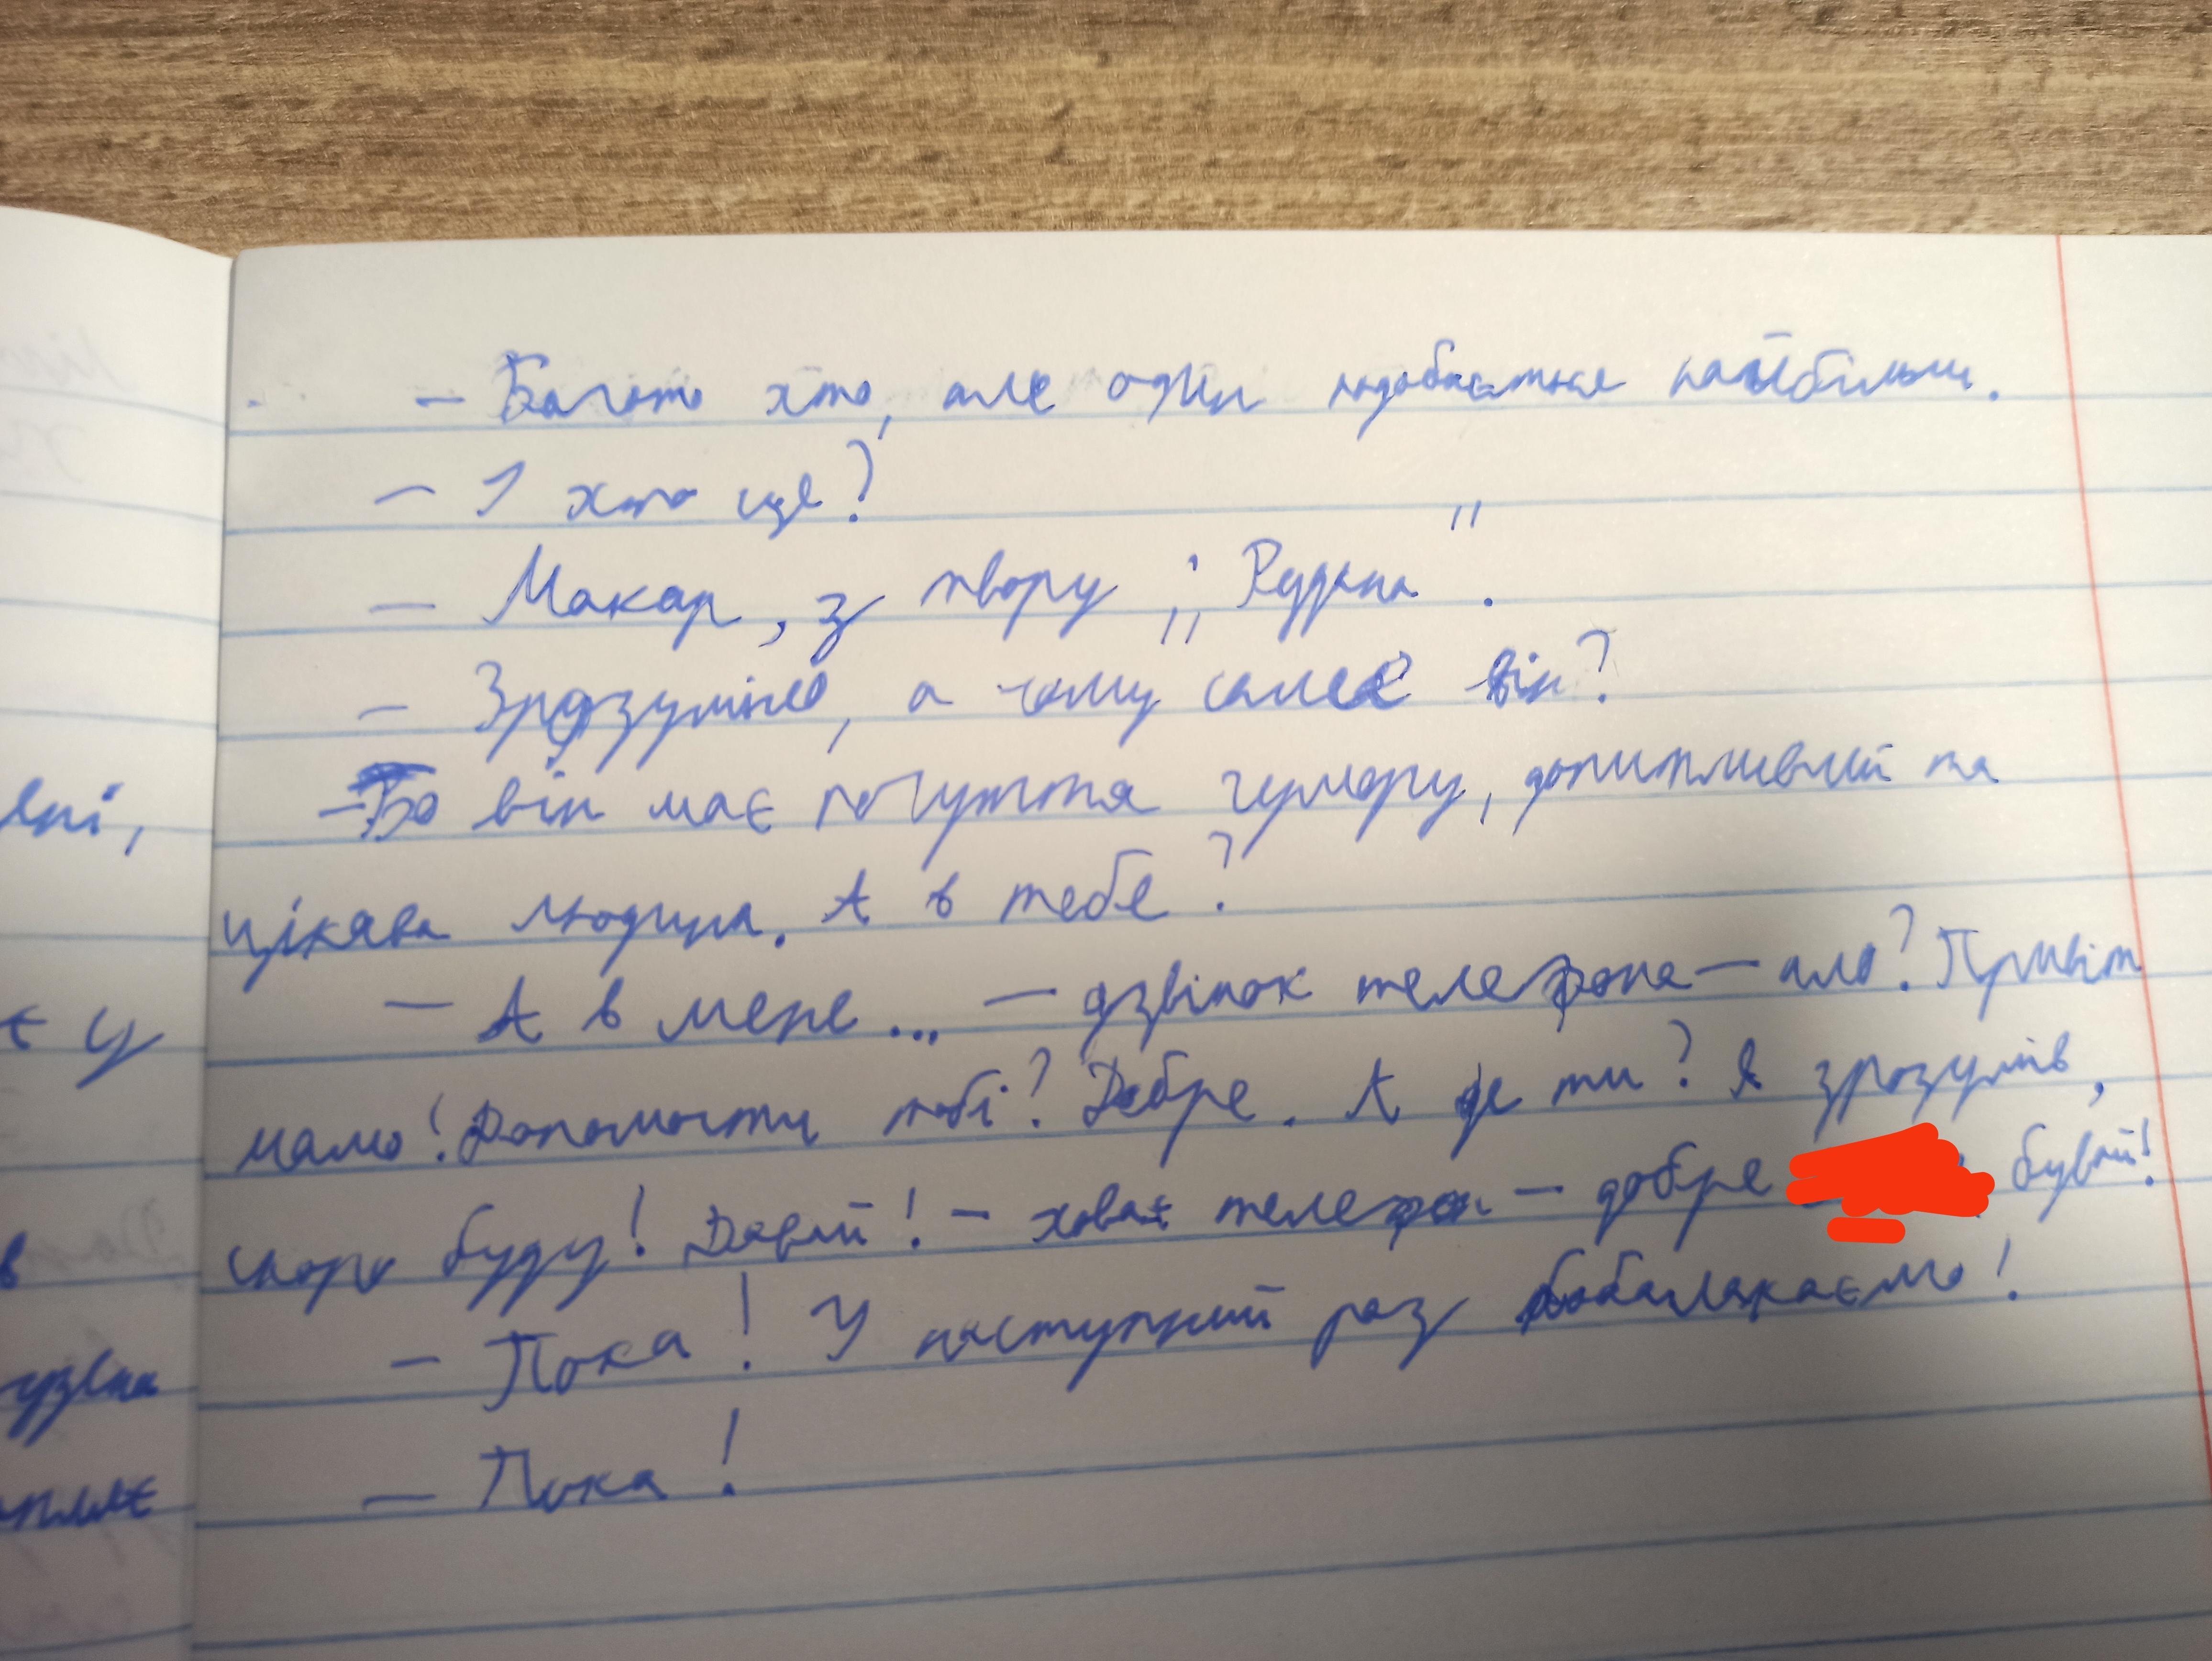 — Багато хто, але один подобається найбільш.
— І хто це?
— Макар, з твору „Рудько".
— Зрозуміло, а чому саме він?
— Бо він має почуття гумору, допитливий та
цікава людина. А в тебе?
— А в мене... — дзвінок телефона — ало? Привіт
мамо! Допомогти тобі? Добре. А де ти? Я зрозумів,
скоро буду! Давай! — ховає телефон — добре бувай!
— Пока! У наступний раз побалакаємо!
— Пока!